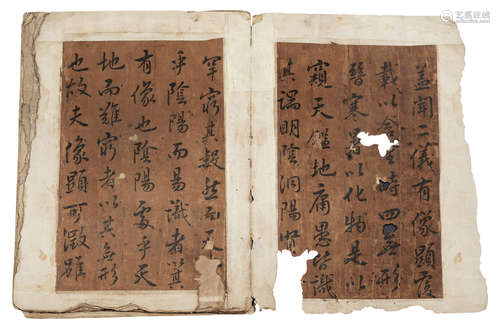 盖聞二儀有像顯覆
載以含時四無形
寒暑以化物是以
窺天鑑地庸愚皆識
其端明陰洞陽賢
罕窮其數然而天
乎陰陽而易識者以其
有像也陰陽處乎天
地而難窮者以其無形
也故夫像顯可徵雖